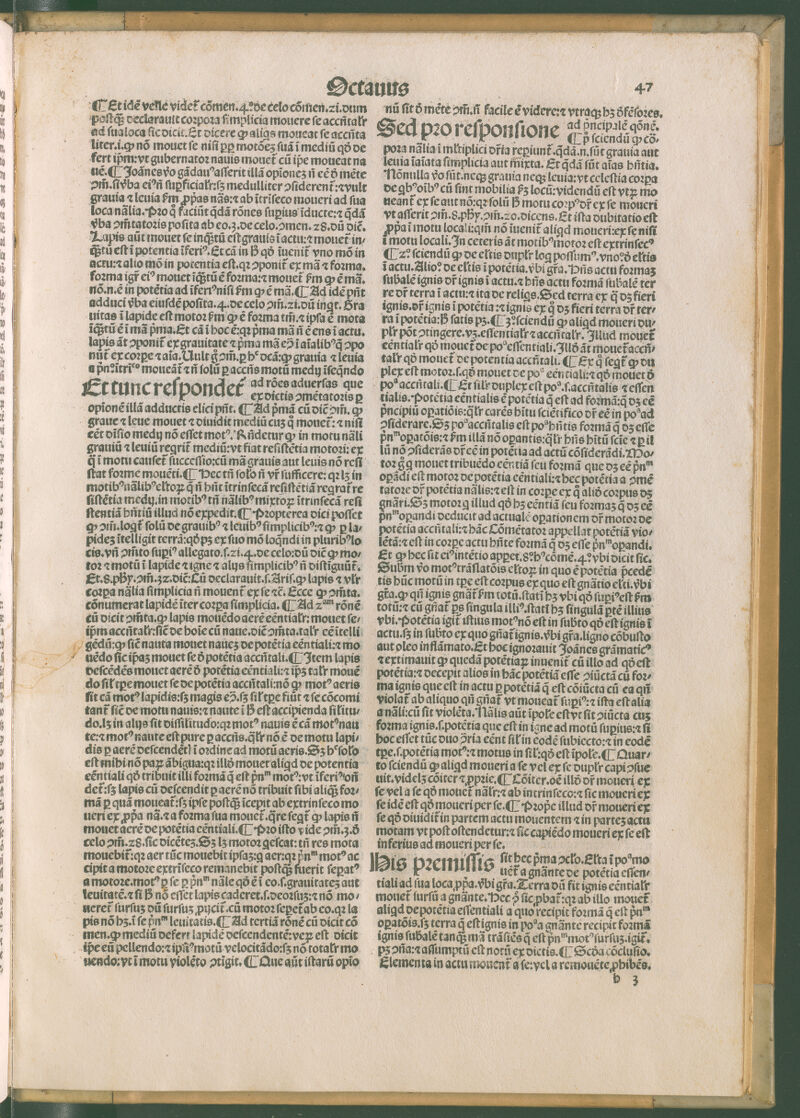 Octauus
47
¶ Et idē velle videt̄ cōmen. 4.º de celo cōmen. 21. dum
postq̄ȝ declarauit corpora simplicia mouere se accn̄talr̄
ad sua loca sic dicit. Et dicere ꝙ aliqs moueat se accn̄ta
liter .i. ꝙ nō mouet se nisi pp̄ motōeȝ suā ī mediū qd̄ de
fert ip̄m: vt gubernator nauis mouet̄ cū ip̄e moueat na
uē. ¶ Joānes v̄o gādau⁹ asserit illā opionēȝ n̄ eē d̄ mēte
ↄm̄. si v̄ba ei⁹ n̄ sup̄ficialr̄: sȝ medulliter ↄsiderent̄: ⁊ vult
grauia ⁊ leuia fm̄ ꝓp̄as nās: ⁊ ab ītrīseco moueri ad sua
loca nālia. Pro q̄ faciūt q̄dā rōnes supius īducte: ⁊ q̄dā
v̄ba ↄm̄tatoris posita ab eo .3. de celo. ↄmen. 28. dū dic̄.
Lapis aūt mouet se inq̄stū est grauis ī actu: ⁊ mouet̄ in
q̄stū est ī potentia īferi⁹. Et cā in h̄ qd̄ īuenit̄ vno mō in
actu: ⁊ alio mō in potentia est. qȝ ↄponit̄ ex mā ⁊ forma.
forma igit̄ ei⁹ mouet īq̄stū ē forma: ⁊ mouet̄ fm̄ ꝙ ē mā.
nō .n. ē in potētia ad īferi⁹ nisi fm̄ ꝙ ē mā. ¶ Ad idē pn̄t
adduci v̄ba eiusdē posita .4. de celo ↄm̄. 21. dū inqt. Gra
uitas ī lapide est motor fm̄ ꝙ ē forma tm̄. ⁊ ip̄sa ē mota
īq̄stū ē ī mā pͥma. Et cā ī hoc ē: qȝ pͥma mā n̄ ē ens ī actu.
lapis āt ↄponit̄ ex grauitate ⁊ pͥma mā eↄ̄ ī aīalib⁹ q̄ ↄpo
nūt̄ ex corꝑe ⁊ aīa. Uult ḡ ↄm̄. ꝑ h⁹ ꝺcā: ꝙ grauia ⁊ leuia
a pn⁰ ītrīº moueāt̄ ⁊ n̄ solū ꝑ accn̄s motū medij īseq̄ndo
Et tunc respondet̄ ad rōes aduersas que
ex dictis ↄmētatoris ꝑ
opionē illā adductis elici pn̄t. ¶ Ad pͥmā cū dic̄ ↄm̄. ꝙ
graue ⁊ leue mouet ⁊ diuidit mediū cuȝ q̄ mouet̄: ⁊ nisi
eēt d̄isio medij nō esset mot⁹. Rn̄detur ꝙ in motu nāli
grauiū ⁊ leuiū reqrit̄ mediū: vt fiat resistētia motori: ex
q̄ ī motu causet̄ successio: cū mā grauis aut leuis nō resi
stat forme mouēti. ¶ Hec tn̄ solo n̄ vr̄ sufficere: qȝ lȝ in
motib⁹ nālib⁹ eltoꝝ q̄ n̄ hn̄t ītrinsecā resistētiā reqrat̄ re
sistētia medij. in motib⁹ tn̄ nālib⁹ mixtoꝝ ītrinsecā resi
stentiā hn̄tiū illud nō expedit. ¶ Propterea dici posset
ꝙ ↄm̄. loqt̄ solū de grauib⁹ ⁊ leuib⁹ simplicib⁹: ⁊ ꝙ ꝑ la
pideȝ ītelligit terrā: qd̄ pȝ ex suo mō loqn̄di in plurib⁹ lo
cis. vn̄ ↄm̄to supi⁹ allegato .s. 21. 4. de celo: dū dic̄ ꝙ mo
tor ⁊ motū ī lapide ⁊ igne ⁊ alijs simplicib⁹ n̄ distiguūt̄.
Et .8. phꝭ. ↄm̄. 32. dic̄: Cū declarauit .s. Aris. ꝙ lapis ⁊ vlr̄
corpa nālia simplicia n̄ mouent̄ ex se ⁊c̄. Ecce ꝙ ↄm̄ta.
cōnumerat lapidē īter corpa simplicia. ¶ Ad 2ᵃᵐ rōnē
cū dicit ↄm̄ta. ꝙ lapis mouēdo aerē eēntialr̄: mouet se
ip̄m accn̄talr̄: sic̄ de hoīe cū naue. dic̄ ↄm̄ta. talr̄ eē ītelli
gēdū: ꝙ sic̄ nauta mouet naueȝ de potētia eēntiali: ⁊ mo
uēdo sic ip̄aȝ mouet se d̄ potētia accn̄tali. ¶ Item lapis
descēdēs mouet aerē d̄ potētia eēntiali: ⁊ ip̄ȝ talr̄ mouē
do sil̄ tp̄e mouet se de potētia accn̄tali: nō ꝙ mot⁹ aeris
sit cā mot⁹ lapidis: sȝ magis eↄ̄. sȝ sil̄ tp̄e fiūt ⁊ se cōcomi
tant̄ sic̄ de motu nauis: ⁊ naute ī h̄ est accipienda sil̄itu
do. lȝ in alijs sit dissil̄itudo: qȝ mot⁹ nauis ē cā mot⁹ nau
te: ⁊ mot⁹ naute est pure ꝑ accn̄s. qlr̄ nō ē de motu lapi
dis ꝑ aerē descendēt̄ ī ordine ad motū aeris. Sȝ h⁹ solo
est mihi nō paꝝ ābigua: qȝ illō mouet aliqd de potentia
eēntiali qd̄ tribuit illi formā q̄ est pn̄ᵐ mot⁹: vt īferi⁹ on̄
det̄: sȝ lapis cū descendit ꝑ aerē nō tribuit sibi aliqȝ for
mā ꝑ quā moueat̄: sȝ ip̄se postq̄ȝ īcepit ab extrinseco mo
ueri ex ꝓp̄a nā. ⁊ a forma sua mouet̄. q̄re seqt̄ ꝙ lapis n̄
mouet aerē de potētia eēntiali. ¶ Pro isto vide ↄm̄. 3. d̄
celo ↄm̄. 28. sic dicēteȝ. Sȝ lȝ motor qescat: tn̄ res mota
mouebit̄: qȝ aer tūc mouebit ip̄saȝ: ꝗ aer: qȝ pn̄ᵐ mot⁹ ac
cipit a motore extrīseco remanebit postq̄ȝ fuerit sepat⁹
a motore. mot⁹ ꝑ se ꝑ pn̄ᵐ nāle qd̄ ē ī eo .s. grauitateȝ aut
leuitatē. ⁊ si h̄ nō esset lapis caderet .s. deorsuȝ: ⁊ nō mo
ueret̄ sursuȝ dū sursuȝ ꝓijcit̄. cū motor sepet̄ ab eo. qȝ la
pis nō hȝ .ī se pn̄ᵐ leuitatis. ¶ Ad tertiā rōnē cū dicit cō
men. ꝙ mediū defert lapidē descendentē: veꝝ est dicit
ip̄e eū pellendo: ⁊ ip̄i⁹ motū velocitādo: sȝ nō totalr̄ mo
uendo: vt ī motu violēto ↄtigit. ¶ Que aūt istarū opio
nū sit d̄ mēte ↄm̄. n̄ facile ē videre: ⁊ vtraqȝ hȝ d̄fēsores.
Sed pro responsione ad pͥncipalē qōnē.
¶ Pͥ sciendū ꝙ cō
pora nālia ī mltiplici dr̄ia repiunt̄. q̄dā .n. sūt grauia aut
leuia īaīata simplicia aut mixta. Et q̄dā sūt aīas hn̄tia.
Nōnulla v̄o sūt. neqȝ grauia neqȝ leuia: vt celestia corpa
de qb⁹ oīb⁹ cū sint mobilia fꝫ locū: videndū est vtꝝ mo
ueant̄ ex se aut nō: qȝ solū h̄ motu co:p⁹ dr̄ ex se moueri
vt asserit ↄm̄. 8. phꝭ. ↄm̄. 20. dicens. Et ista dubitatio est
ꝓp̄a ī motu locali: qm̄ nō īuenit̄ aliqd moueri: ex se nisi
ī motu locali. In ceteris āt motib⁹ motor est extrinsec⁹
¶ 2º sciendū ꝙ de eltis duplr̄ loq possum⁹. vnoº d̄ eltis
ī actu. Alioº de eltis ī potētia. vbi gr̄a. Hn̄s actu formaȝ
subalē ignis dr̄ ignis ī actu. ⁊ hn̄s actu formā subalē ter
re dr̄ terra ī actu: ⁊ ita de reliqs. Sed terra ex q̄ dȝ fieri
ignis. dr̄ ignis ī potētia: ⁊ ignis ex q̄ dȝ fieri terra dr̄ ter
ra ī potētia: h̄ satis pȝ. ¶ 3º sciendū ꝙ aliqd moueri du
plr̄ pōt ↄtingere. vȝ. essētialr̄ ⁊ accn̄talr̄. Illud mouet̄
eēntialr̄ qd̄ mouet̄ de poᵃ essentiali. Illō āt mouet̄ accn̄
talr̄ qd̄ mouet̄ de potentia accn̄tali. ¶ Ex q̄ seqt̄ ꝙ du
plex est motor .s. qd̄ mouet de poᵃ eēntiali: ⁊ qd̄ mouet d̄
poᵃ accn̄tali. ¶ Et sil̄r duplex est poᵃ .s. accn̄talis ⁊ essen
tialis. Potētia eēntialis ē potētia q̄ est ad formā: q̄ dȝ eē
pͥncipiū opatiōis: qlr̄ carēs hītu sciētifico dr̄ eē in poᵃ ad
ↄsiderare. Sȝ poᵃ accn̄talis est poᵃ hn̄tis formā q̄ dȝ esse
pn̄ᵐ opatōis: ⁊ fm̄ illā nō opantis: qlr̄ hn̄s hītū scīe ⁊ ꝑ il
lū nō ↄsiderās dr̄ eē in potētia ad actū cōsiderādi. Mo
tor ḡ q̄ mouet tribuēdo eēntiā seu formā que dȝ eē pn̄ᵐ
opādi est motor de potētia eēntiali: ⁊ hec potētia a ↄmē
tatore dr̄ potētia nālis: ⁊ est in corꝑe ex q̄ aliō corpus dȝ
gn̄ari. Sȝ motor q̄ illud qd̄ hȝ eēntiā seu formaȝ q̄ dȝ eē
pn̄ᵐ opandi deducit ad actualē opationem dr̄ motor de
potētia accn̄tali: ⁊ hāc Cōmētator appellat potētiā vio
lētā: ⁊ est in corꝑe actu hn̄te formā q̄ dȝ esse pn̄ᵐ opandi.
Et ꝙ hec sit ei⁹ intētio appet. 8º h⁹ cōmē. 4º vbi dicit sic.
Subm̄ v̄o mot⁹ trāslatōis eltoꝝ in quo ē potētia p̄cedē
tis hūc motū in tp̄e est corpus ex quo est gn̄atio elti. vbi
gr̄a. ꝙ qn̄ ignis gn̄at̄ fm̄ totū. statī hȝ vbi qd̄ supi⁹ est fm̄
totū: ⁊ cū gn̄at̄ ꝑs singula illi⁹. statī hȝ singulā ꝑtē illius
vbi. Potētia igit̄ istius mot⁹ nō est in subto qd̄ est ignis ī
actu. sȝ in subto ex quo gn̄at̄ ignis. vbi gr̄a. ligno cōbusto
aut oleo inflāmato. Et hoc ignorauit Joānes grāmatic⁹
⁊ extimauit ꝙ quedā potētiaꝝ inuenit̄ cū illo ad qd̄ est
potētia: ⁊ decepit alios in hāc potētiā esse ↄiūctā cū for
ma ignis que est in actu ꝑ potētiā q̄ est cōiūcta cū ea qn̄
violat̄ ab aliquo qn̄ gn̄at̄ vt moueat̄ supi⁹: ⁊ ista est alia
a nāli: cū sit violēta. Nālis aūt īpole est vt sit ↄiūcta cuȝ
forma ignis .s. potētia que est in igne ad motū supius: ⁊ si
hoc esset tūc duo ↄr̄ia eēnt sil̄ in eodē subiecto: ⁊ in eodē
tp̄e .s. potētia mot⁹: ⁊ motus in sil̄: qd̄ est īpole. ¶ Quar
to sciendū ꝙ aliqd moueri a se vel ex se duplr̄ capi ↄsue
uit. videlȝ cōiter ⁊ ꝓprie. ¶ Cōiter. oē illō dr̄ moueri ex
se vel a se qd̄ mouet̄ nālr̄: ⁊ ab intrinseco: ⁊ sic moueri ex
se idē est qd̄ moueri per se. ¶ Prop̄e illud dr̄ moueri ex
se qd̄ diuidit̄ in partem actu mouentem ⁊ in parteȝ actu
motam vt post ostendetur: ⁊ sic capiēdo moueri ex se est
inferius ad moueri per se.
His premissis sit hec pͥma ↄclo. Elta ī poᵃ mo
uēt̄ a gn̄ante de potētia essen
tiali ad sua loca ꝓp̄a. vbi gr̄a. Terra dū fit ignis eēntialr̄
mouet̄ sursū a gn̄ante. Hec ꝓ sic pbat̄: qȝ ab illo mouet̄
aliqd de potētia essentiali a quo recipit formā q̄ est pn̄ᵐ
opatōis: sȝ terra q̄ est ignis in poᵃ a gn̄ante recipit formā
ignis subalē tanq̄ȝ mā trāsiēs q̄ est pn̄ᵐ mot⁹ sursuȝ. igit̄.
pȝ ↄn̄a: ⁊ assumptū est notū ex dictis. ¶ Scd̄a cōclusio.
Elementa in actu mouent̄ a se: vel a remouēte ꝓhibēs.
b 3